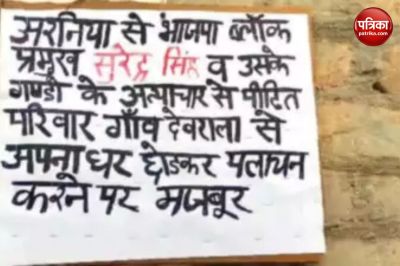 पत्रिका
patrika.com
अरनिया से भाजपा ब्लॉक
प्रमुख सुरेन्द्र सिंह व उसके
गुण्डों के अत्याचार से पीड़ित
परिवार गाँव देवराला से
अपना घर छोडकर पलायन
करने पर मजबूर